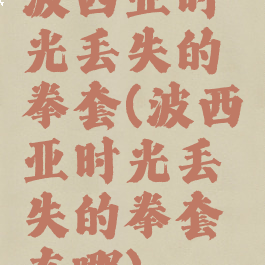 波西亚时
光丢失的
拳套(波西
亚时光丢
失的拳套
在哪)